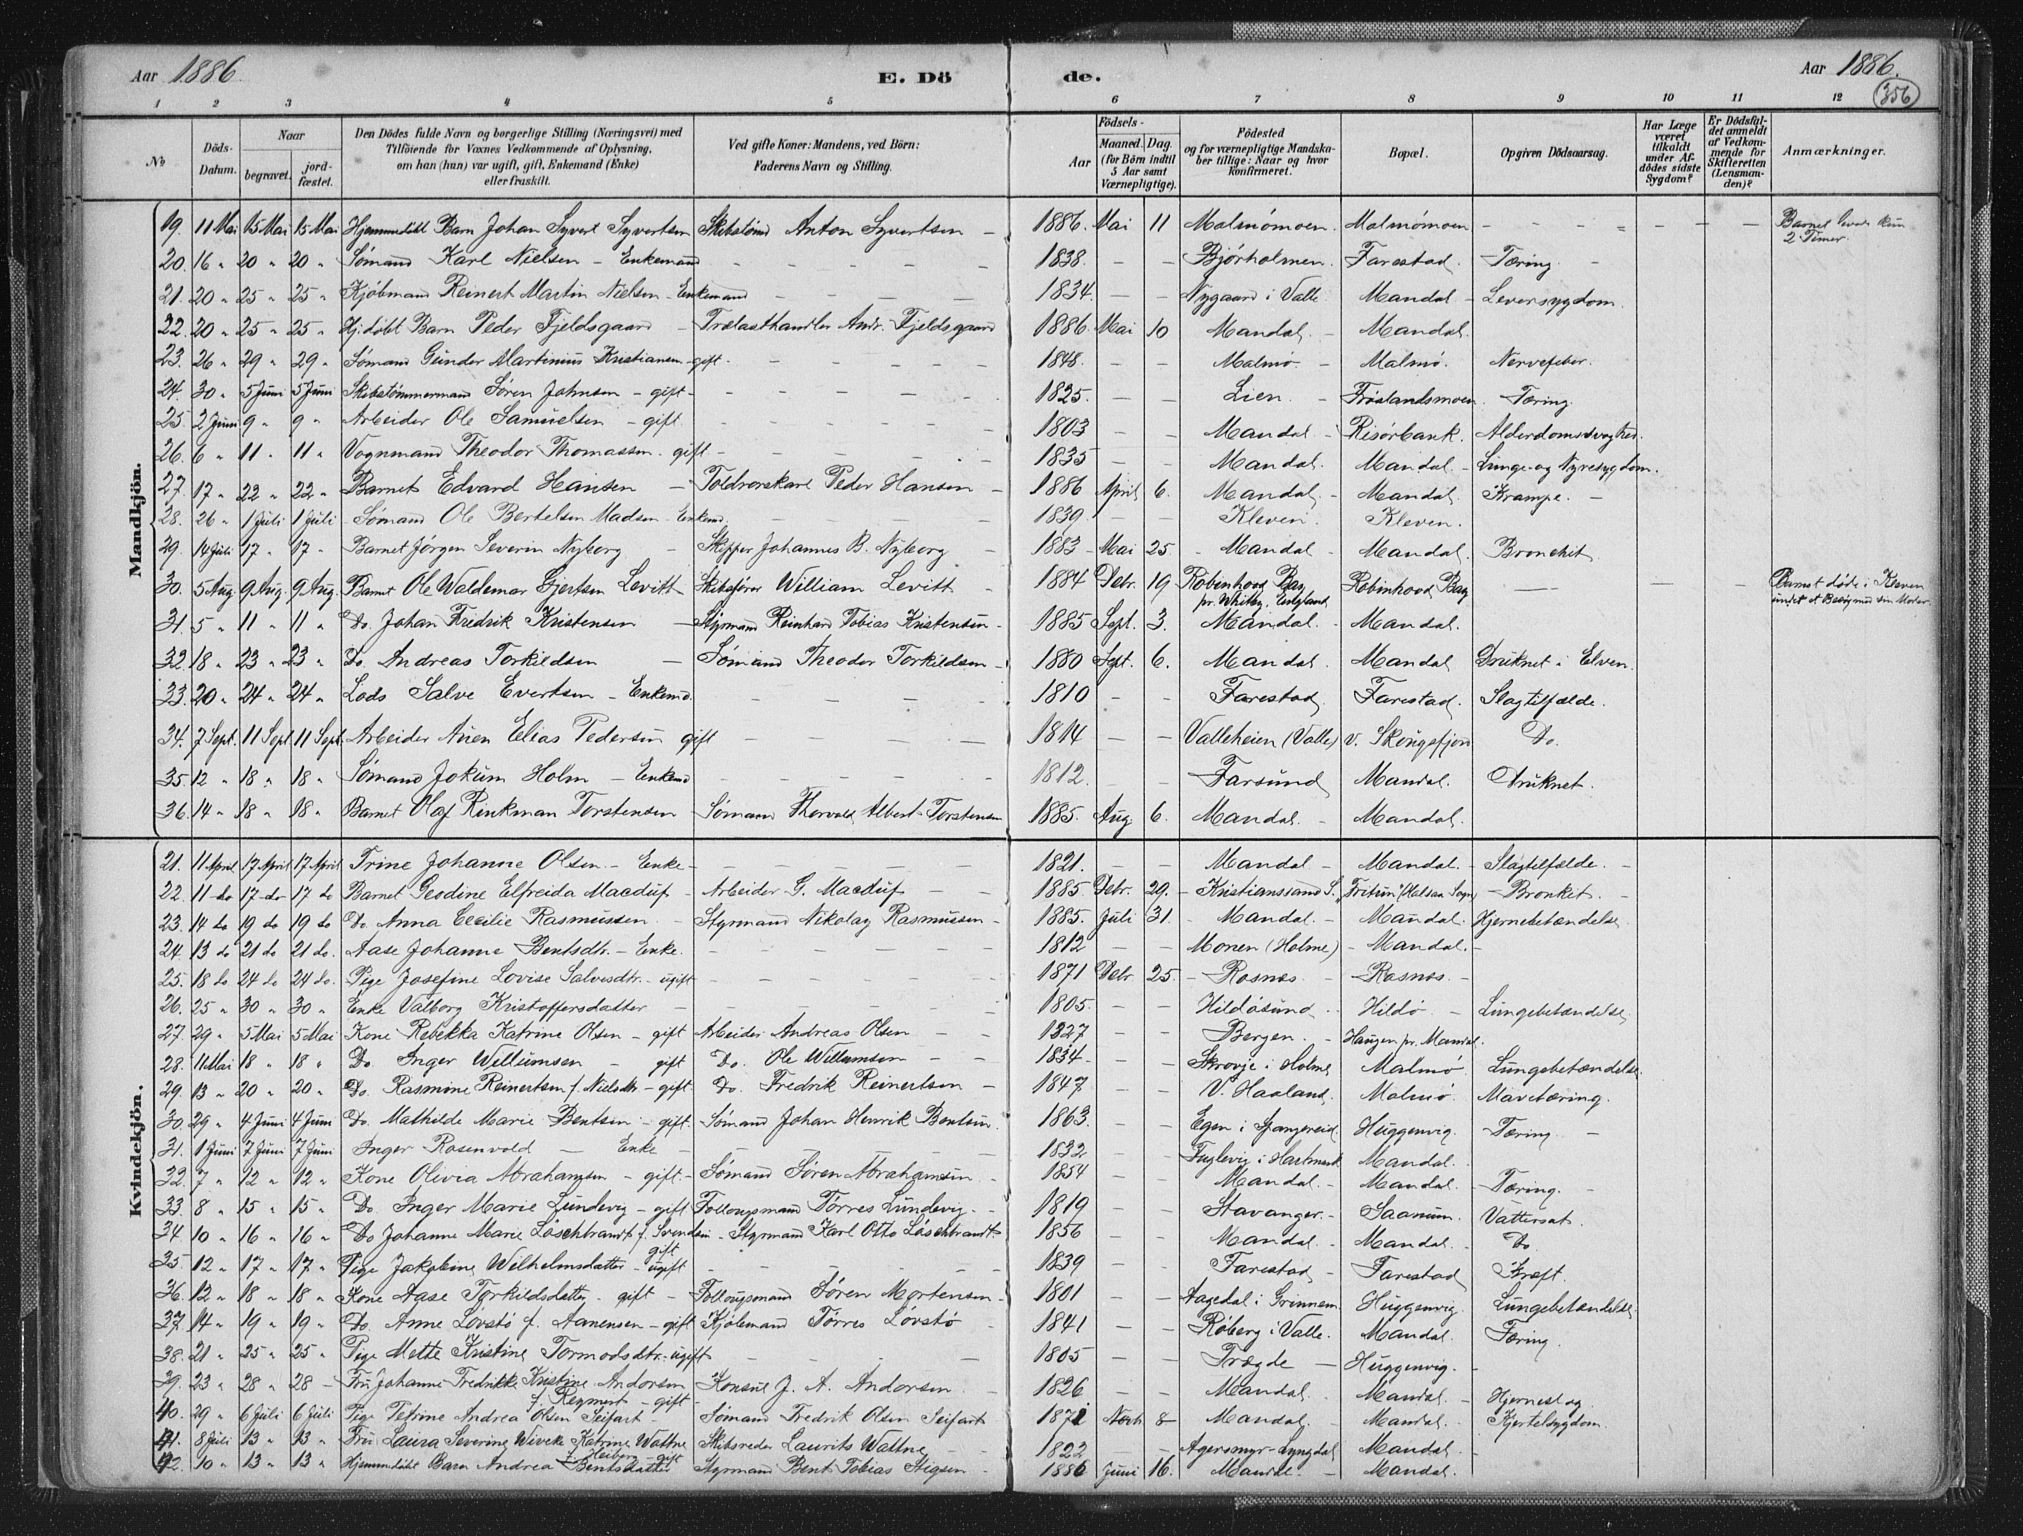 Aar 1886. E. Dö de. Aar 1886.
356
1 2 3 4 5 6 7 8 9 10 11 12
No
Döds-Datum.
Naar
begravet.
jord-fæstet.
Den Dödes fulde Navn og borgerlige Stilling (Næringsvei) med
Tilföiende for Voxnes Vedkommende af Oplysning,
om han (hun) var ugift, gift, Enkemand (Enke)
eller fraskilt.
Ved gifte Koner: Mandens, ved Börn:
Faderens Navn og Stilling.
Födsels-
Aar
Maaned. Dag.
(for Börn indtil
5 Aar samt
Værnepligtige).
Födested
og for værnepligtige Mandska-
ber tillige: Naar og hvor
konfirmeret.
Bopæl.
Opgiven Dödsaarsag.
Har Læge
været
tilkaldt
under Af-
dödes sidste
Sygdom?
Er Dödsfal-
det anmeldt
af Vedkom-
mende for
Skifteretten
(Lensman-
den)?
Anmærkninger.
Mandkjön.
19. 11 Mai 15 Mai 15 Mai Hjemmedöbt Barn Johan Syvert Syvertsen Skibstømd Anton Syvertsen 1886. Mai 11 Malmømoen. Malmømoen Barnet levede kun 2 Timer.
20. 16 " 20 " 20 " Sømand Karl Nielsen - Enkemand 1838. Bjørholmen. Farestad. Tæring.
21. 20 " 25 " 25 " Kjøbmand Reinert Martin Nielsen - Enkemand 1834. Nygaard i Valle Mandal Leversygdom.
22. 20 " 25 " 25 " Hj.døbt Barn Peder Fjeldsgaard - Trælasthandler Andr. Fjeldsgaard 1886. Mai 10 Mandal - Mandal.
23. 26 " 29 " 29 " Sømand Gunder Martinius Kristiansen - gift - 1848. Malmø. Malmø. Nervefeber.
24. 30 " 5 Juni 5 Juni Skibstømmermand Søren Johnsen - gift - 1825. Lien. Frøslandsmoen. Tæring.
25. 2 Juni 9 " 9 " Arbeider Ole Samuelsen - gift 1803 Mandal - Risørbank. Alderdomssvaghed.
26. 6 " 11 " 11 " Vognmand Theodor Thomassen - gift - 1835 Mandal. Mandal - Lunge- og Nyresygdom.
27. 17 " 22 " 22 " Barnet Edvard Hansen - Toldrorskarl Peder Hansen - 1886 April 6. Mandal - Mandal. Krampe.
28. 26 " 1 Juli 1 Juli Sømand Ole Bertelsen Madsen - Enkemd. 1839. Kleven. Kleven.
29. 14 Juli 17 " 17 " Barnet Jørgen Severin Nyborg - Skipper Johannes B. Nyborg 1883 Mai 25 - Mandal - Mandal. Bronchit.
30. 5 Aug. 9 Aug. 9 Aug. Barnet Ole Waldemar Gjertsen Levitt Skibsfører William Levitt - 1884 Debr. 19 Robinhood Bay pr. Whitby, England Robinhood Bay Barnet døde i Kleven under et Besøg med sin Moder.
31. 5 " 11 " 11 " Do. Johan Fredrik Kristensen - Styrmand Reinhard Tobias Kristensen - 1885 Sept. 3. Mandal. Mandal.
32. 18 " 23 " 23 " Do. Andreas Torkildsen - Sømand Theodor Torkildsen - 1880 Sept. 6. Mandal. Mandal Druknet i Elven.
33. 20 " 24 " 24 " Lods Salve Evertsen - Enkemd. 1810 Farestad Farestad. Slagtilfælde.
34. 7 Sept. 11 Sept. 11 Sept. Arbeider Anen Elias Pedersen gift 1814 Valleheien (Valle) v. Skougsfjord Do.
35. 12 " 18 " 18 " Sømand Jokum Holm - Enkemd 1812. Farsund Mandal. Druknet.
36. 14 " 18 " 18 " Barnet Olaf Rinkman Torstensen Sømand Thorvald Albert Torstensen 1885. Aug. 6. Mandal. - Mandal.
Kvindekjön.
21. 11 April 17 April 17 April Trine Johanne Olsen - Enke - 1821. Mandal - Mandal. Slagtilfælde.
22. 11 do 17 do 17 do Barnet Geodine Elfreida Macduf - Arbeider G. Macduf 1885 Debr. 29. Kristianssand S. "Fritun" (Halsaa Sogn) Bronkit.
23. 14 do 19 do 19 do Do Anna Cecilie Rasmussen - Styrmand Nikolay Rasmussen 1885. Juli 31. Mandal. Mandal. Hjernebetændelse
24. 13 do 21 do 21 do. Aase Johanne Bentsdtr. - Enke. 1812 Monen (Holme) - Mandal.
25. 18 do 24 do 24 do. Pige Josefine Lovise Salvesdtr. - ugift 1871 Debr. 25. Rosnes. Rosnes
26. 25 " 30 " 30 " Enke Valborg Kristoffersdatter 1805. Hildøsund. Hildø. Lungebetændelse.
27. 29 " 5 Mai 5 Mai Kone Rebekka Katrine Olsen - gift Arbeider Andreas Olsen 1827 Bergen. Haugen pr. Mandal.
28. 11 Mai 18 " 18 " Do. Inger Willumsen - gift Do. Ole Willumsen 1834. Skrovje i Holme Malmø. Lungebetændelse.
29. 13 " 20 " 20 " Do. Rasmine Reinertsen f. Nielsdtr. - gift Do. Fredrik Reinertsen 1847 V. Haaland. Malmø. Mavetæring.
30. 29 " 4 Juni 4 Juni Do. Mathilde Marie Bentsen - gift. Sømand Johan Henrik Bentsen 1863. Egen i Spangereid. Huggenvig. Tæring
31. 1 Juni 7 Juni 7 Juni Inger Rosenvold - Enke 1832 Fuglevig i Hartmark Mandal.
32. 7 " 12 " 12 " Kone Olivia Abrahamsen - gift - Sømand Søren Abrahamsen. 1854 Mandal. Mandal. Tæring.
33. 8 " 15 " 15 " Do. Inger Marie Lundevig - gift Tolloupsmand Torres Lundevig. 1819 Stavanger. Saanum. Vattersot.
34 10 " 16 " 16 " Do Johanne Marie Löschbrandt f. Svendsen gift Styrmand Karl Otto Löschbrandt 1856 Mandal. Mandal. Do.
35. 12 " 17 " 17 " Pige Jakobine Wilhelmsdatter - ugift 1839 Farestad Farestad Kræft.
36. 12 " 18 " 18 " Kone Aase Torkildsdatter - gift - Tolloupsmand Søren Mortensen 1801 Aagedal i Grinnem Huggenvig. Lungebetændelse
37. 14 " 19 " 19 " Do. Anne Løvstø f. Aanensen - gift Kjøbmand Tørres Løvstø 1841 Røberg i Valle. Mandal. Tæring.
38. 21 " 25 " 25 " Pige Mette Kristine Tormodsdtr. - ugift 1805 Trægde - Huggenvig.
39. 23 " 28 " 28 - Fru Johanne Fredrikke Kristine Andorsen - gift - Konsul J. A. Andorsen 1826 Mandal. Mandal -
40. 29 " 6 Juli 6 Juli Pige Petrine Andrea Olsen Seifart Sømand Fredrik Olsen Seifart 1871 Novb. 8 Mandal. Mandal. Hjernest og Kjertelsygdom.
41. 8 Juli 13 " 13 " Fru Laura Severine Wiveke Katrine Wattne - gift Skibsreder Laurits Wattne 1822 Agersmyr - Lyngdal Mandal.
42. 10 " 13 " 13 " Hjemmedöbt Barn Andrea Bentsdatter Styrmand Bent Tobias Stigsen 1886 Juni 16. Mandal. Mandal.